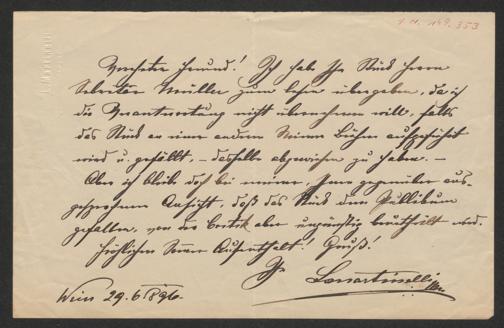 I N. 149.353
Verehrter Freund! Ich habe Ihr Stück Herrn
Sekretär Müller zum lesen übergeben, da ich
die Verantwortung nicht übernehmen will, falls
das Stück an einer anderen Wiener Bühne aufgeführt
wird u. gefällt, – dasselbe abgewiesen zu haben. –
Aber ich bleibe doch bei meiner, Ihnen gegenüber aus-
gesprochenen Ansicht, daß das Stück dem Publikum
gefallen, von der Critik aber ungünstig beurtheilt wird.
Fröhlichen Sommer Aufenthalt! Gruß!
Ihr
Wien 29.6.1896.